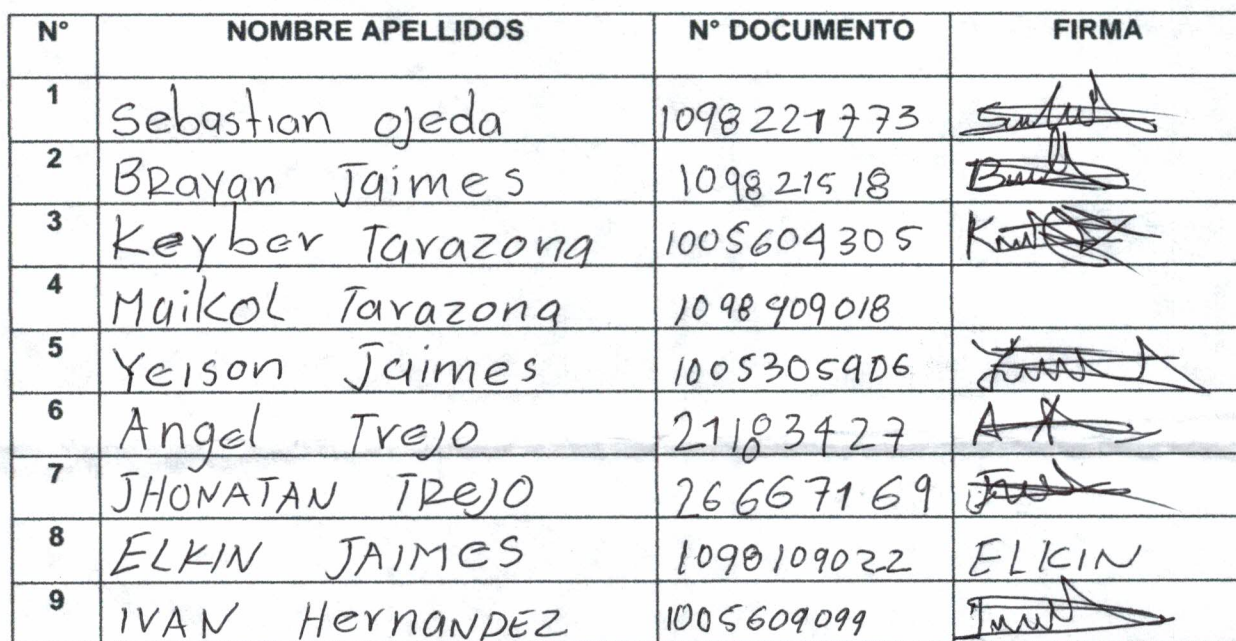 N° NOMBRE APELLIDOS N° DOCUMENTO FIRMA
1 Sebastian ojeda 1098221773
2 BRayan Jaimes 109821518
3 Keyber Tarazona 1005604305
4 Maikol Tarazona 1098909018
5 Yeison Jaimes 1005305906
6 Angel Trejo
7 JHONATAN TRejO 26667169
8 ELKIN JAIMES 1098109022 ELKIN
9 IVAN HernanDEZ 1005609099